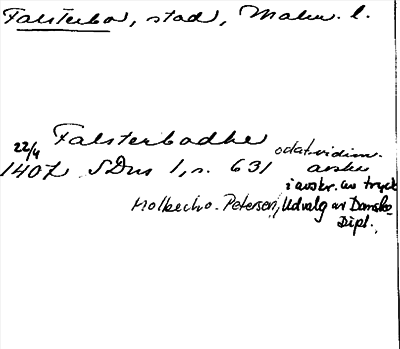 Falsterbo, stad, Malm. l.
Falsterbodhe
22/4 odat. vidim.
1407 SDns 1, s. 631 avskr
i avskr. av tryck
Molbech o. Petersen, Udvalg av Danske
Dipl.,